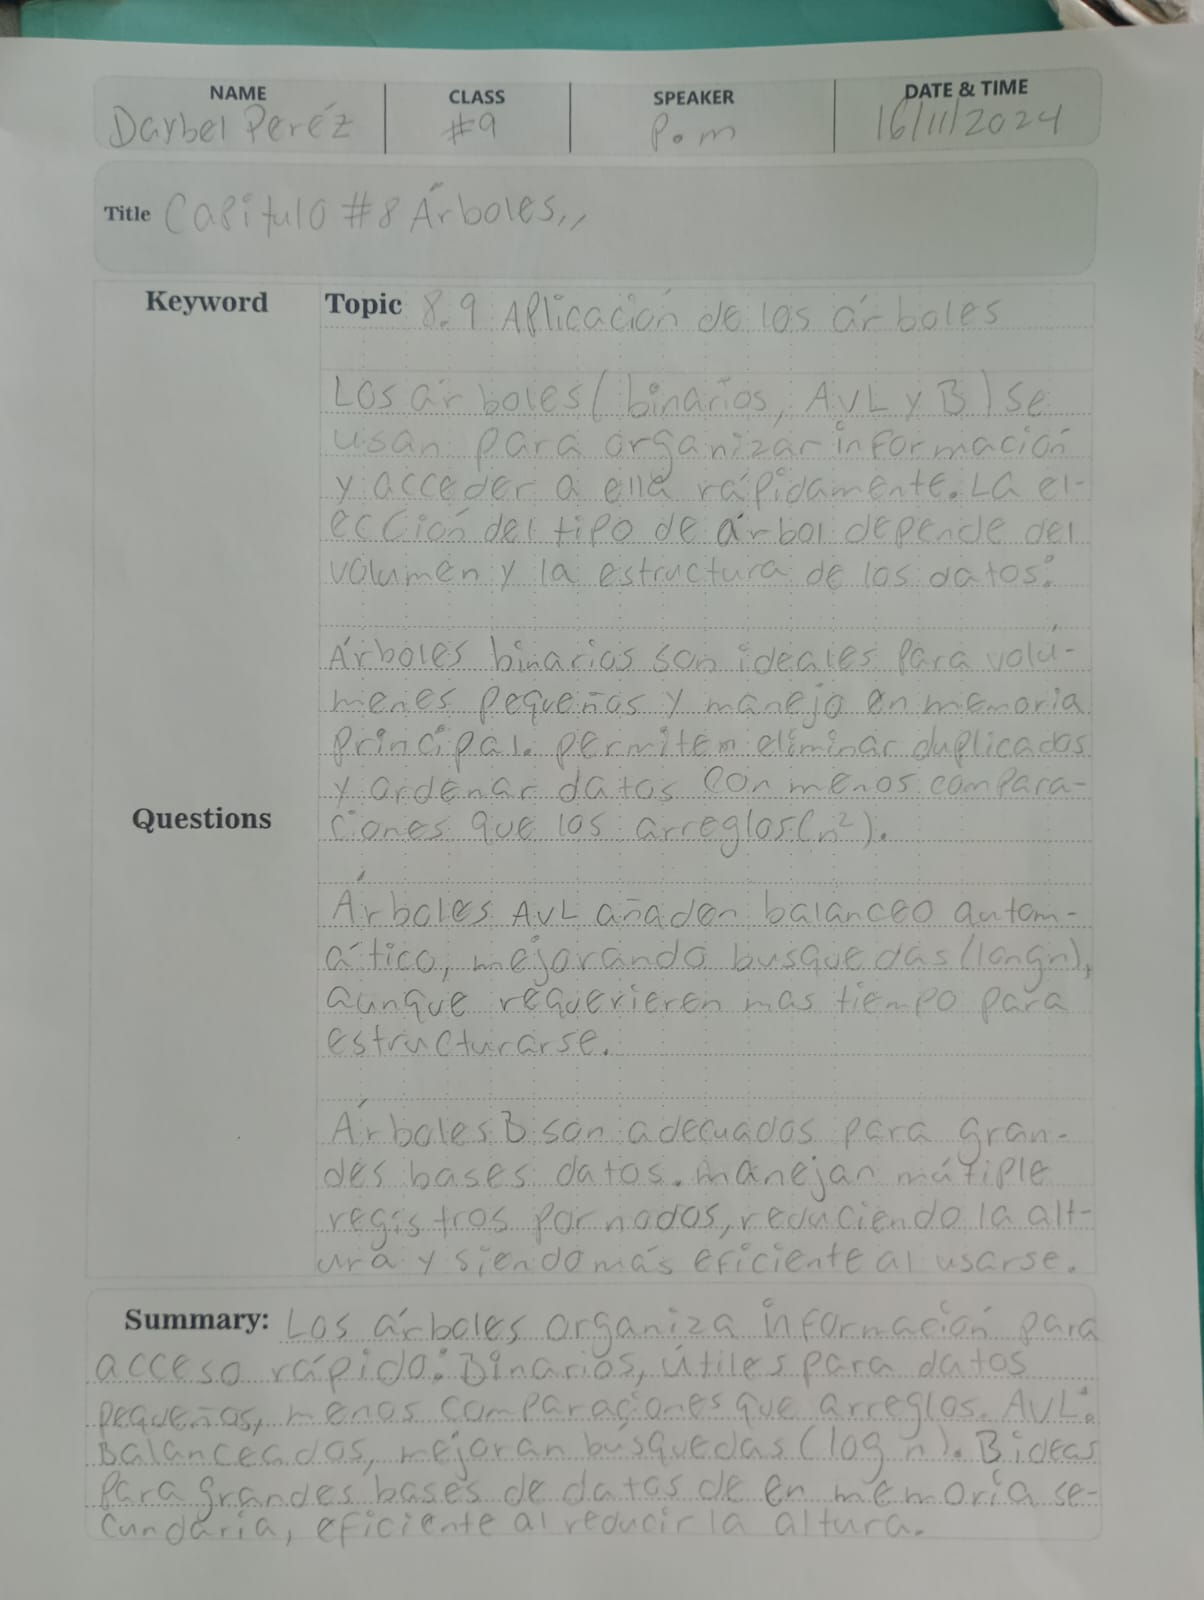 NAME CLASS SPEAKER DATE & TIME
Darbel Peréz #9 P.m 16/11/2024
Title Capitulo #8 Árboles,,
Keyword Topic 8.9 Aplicación de los árboles
Los árboles (binarios, AVL y B) se
usan para organizar información
y acceder a ella rápidamente. La el-
ección del tipo de árbol depende del
volumen y la estructura de los datos:
Árboles binarios son ideales para volú-
menes pequeños y manejo en memoria
principal. permitem eliminar duplicados
y ordenar datos con menos compara-
Questions ciones que los arreglos (n²).
Árboles AVL añaden balanceo autom-
ático, mejorando busquedas (longn),
aunque requerieren mas tiempo para
estructurarse.
Árboles B son adecuados para gran-
des bases datos. manejan mútiple
registros por nodos, reduciendo la alt-
ura y siendo más eficiente al usarse.
Summary: Los árboles organiza información para
acceso rápido: Binarios, útiles para datos
pequeños, menos comparaciones que arreglos. AVL:
Balanceados, mejoran búsquedas (log n). B ideas
para grandes bases de datos de en memoria se-
cundaria, eficiente al reducir la altura.